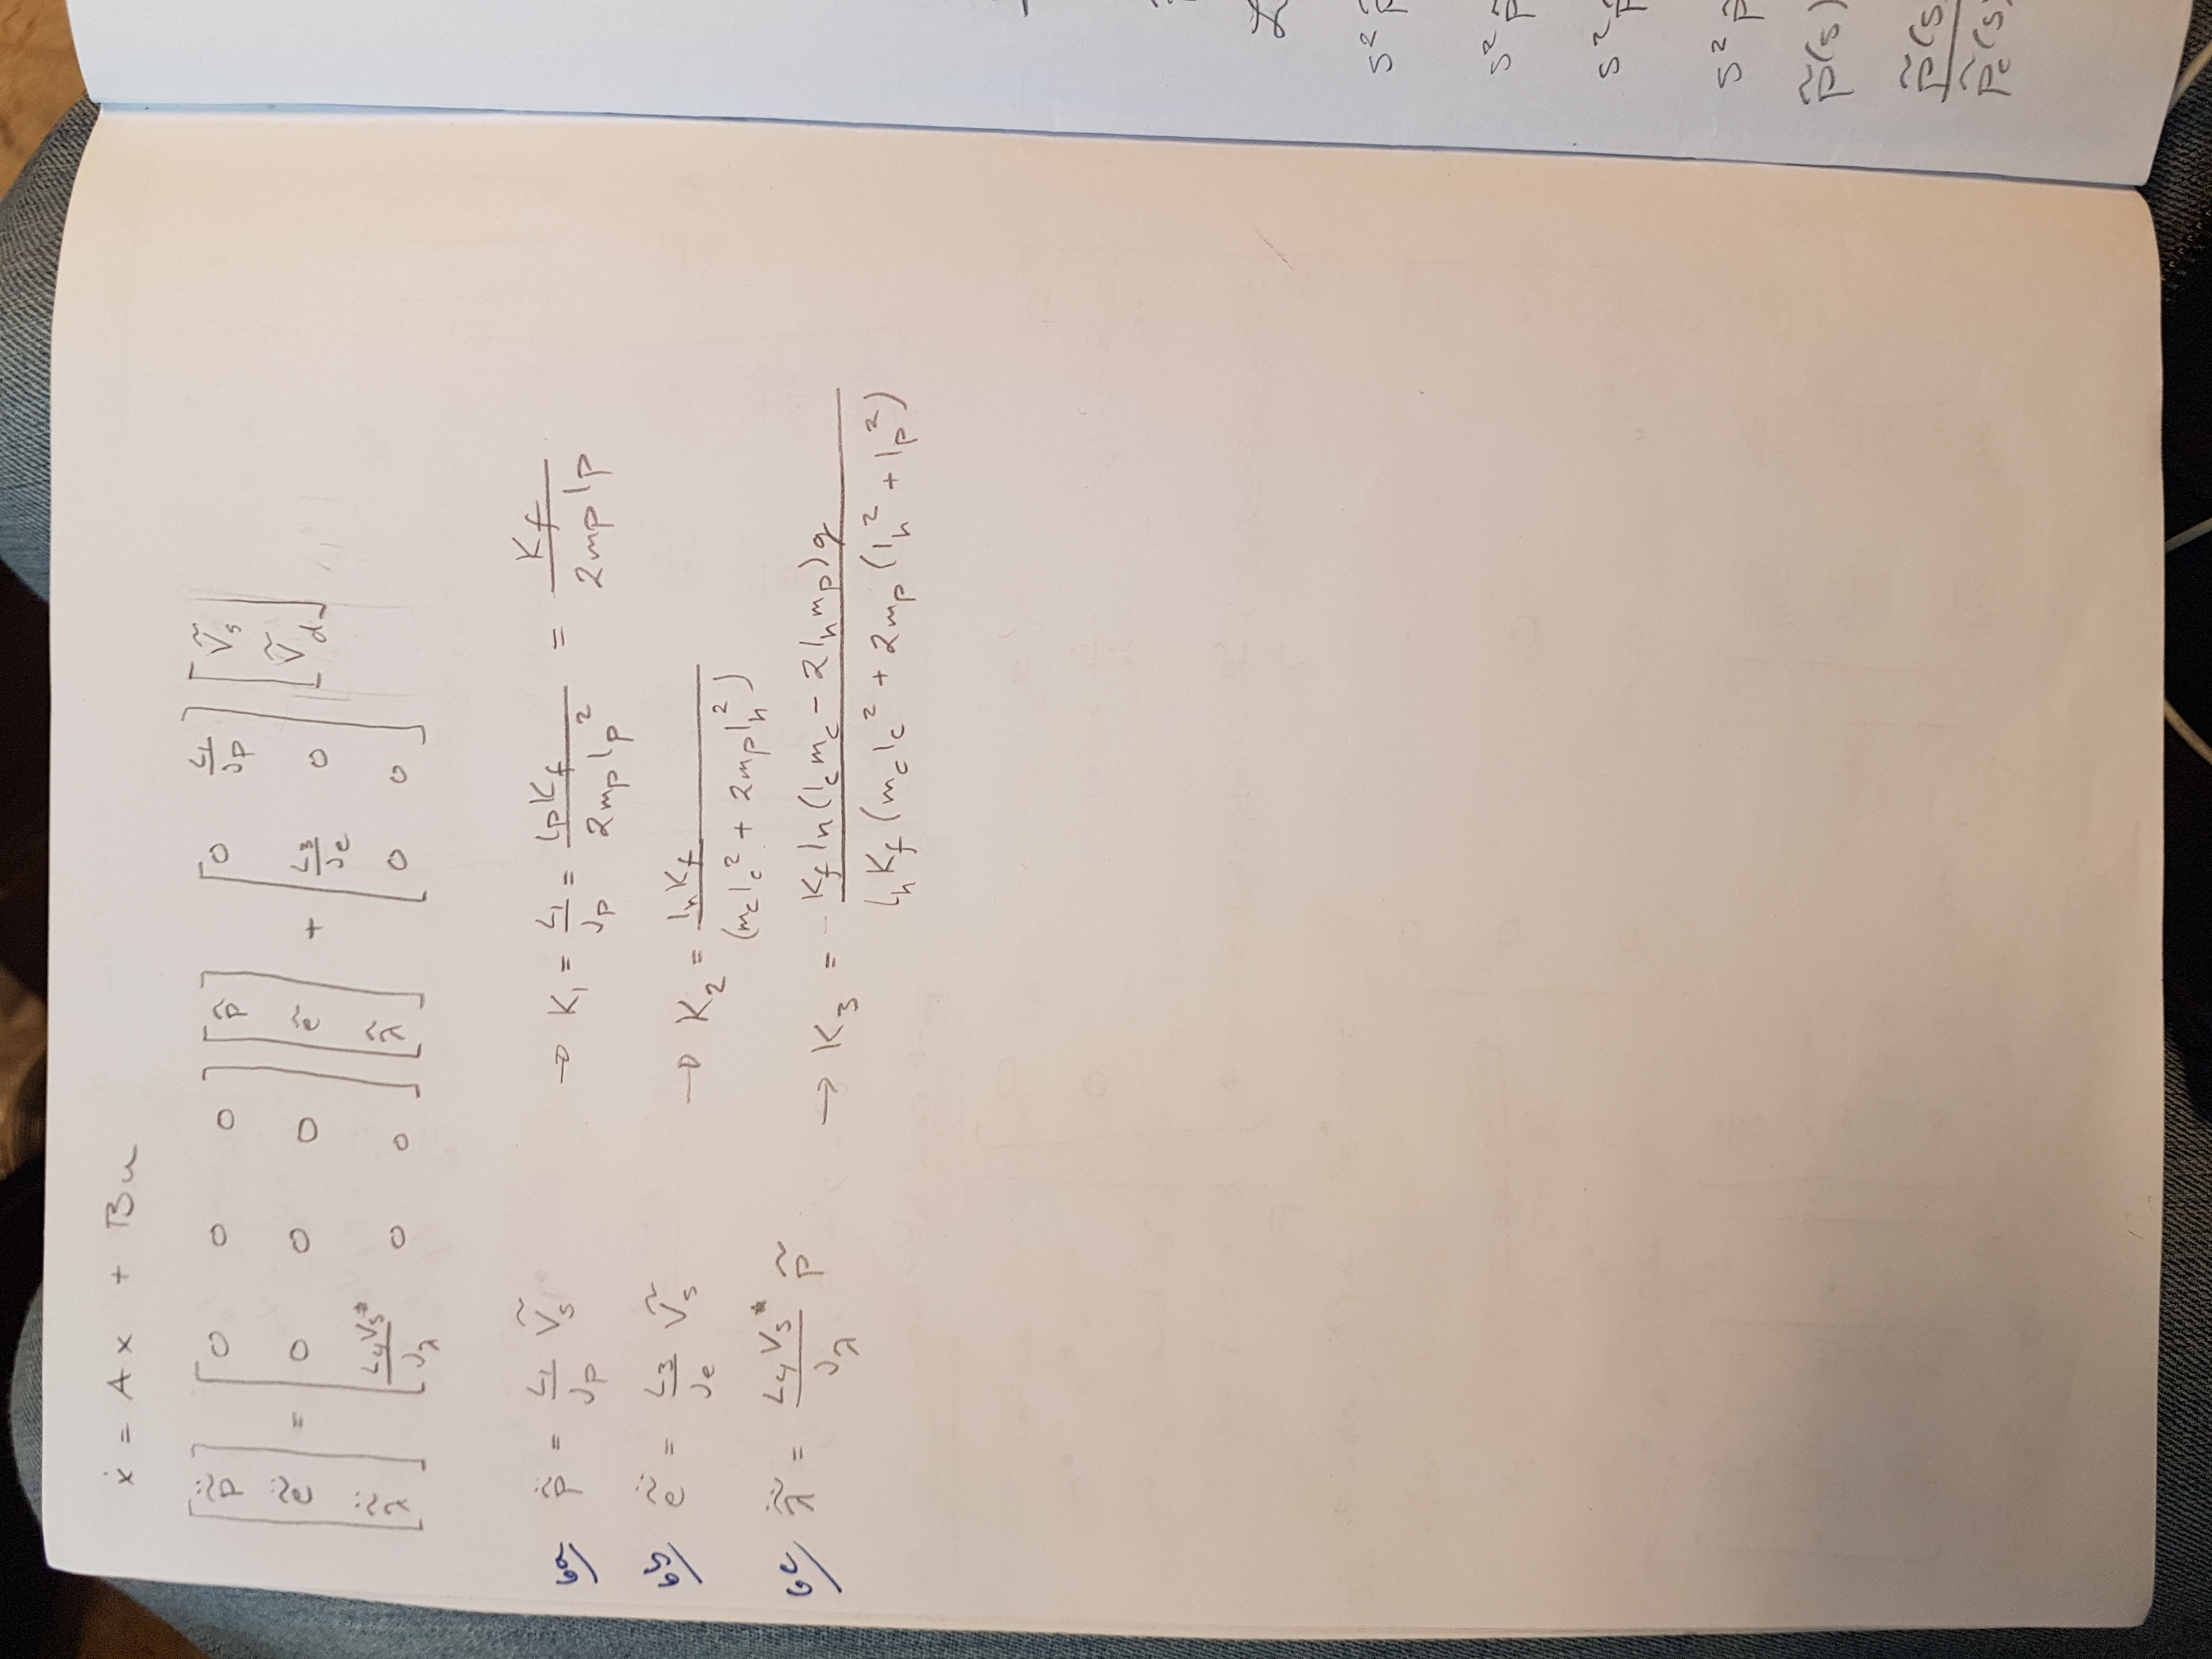 ẋ = A x + B u
[p̃̈; ẽ̈; λ̃̈] = [0 0 0; 0 0 0; L₄Vs*/Jλ 0 0] [p̃; ẽ; λ̃] + [0 L₁/Jp; L₃/Je 0; 0 0] [Ṽs; Ṽd]
6a p̃̈ = L₁/Jp Ṽs → K₁ = L₁/Jp = lpKf / 2mplp² = Kf / 2mplp
6b ẽ̈ = L₃/Je Ṽs → K₂ = lhKf / (mclc² + 2mplh²)
6c λ̃̈ = L₄Vs*/Jλ p̃ → K₃ = - Kf lh (lcmc - 2lhmp)g / lhKf (mclc² + 2mp (lh² + lp²)
s²
s²
s²
s²
p̃(s)
p̃(s)
p̃c(s)